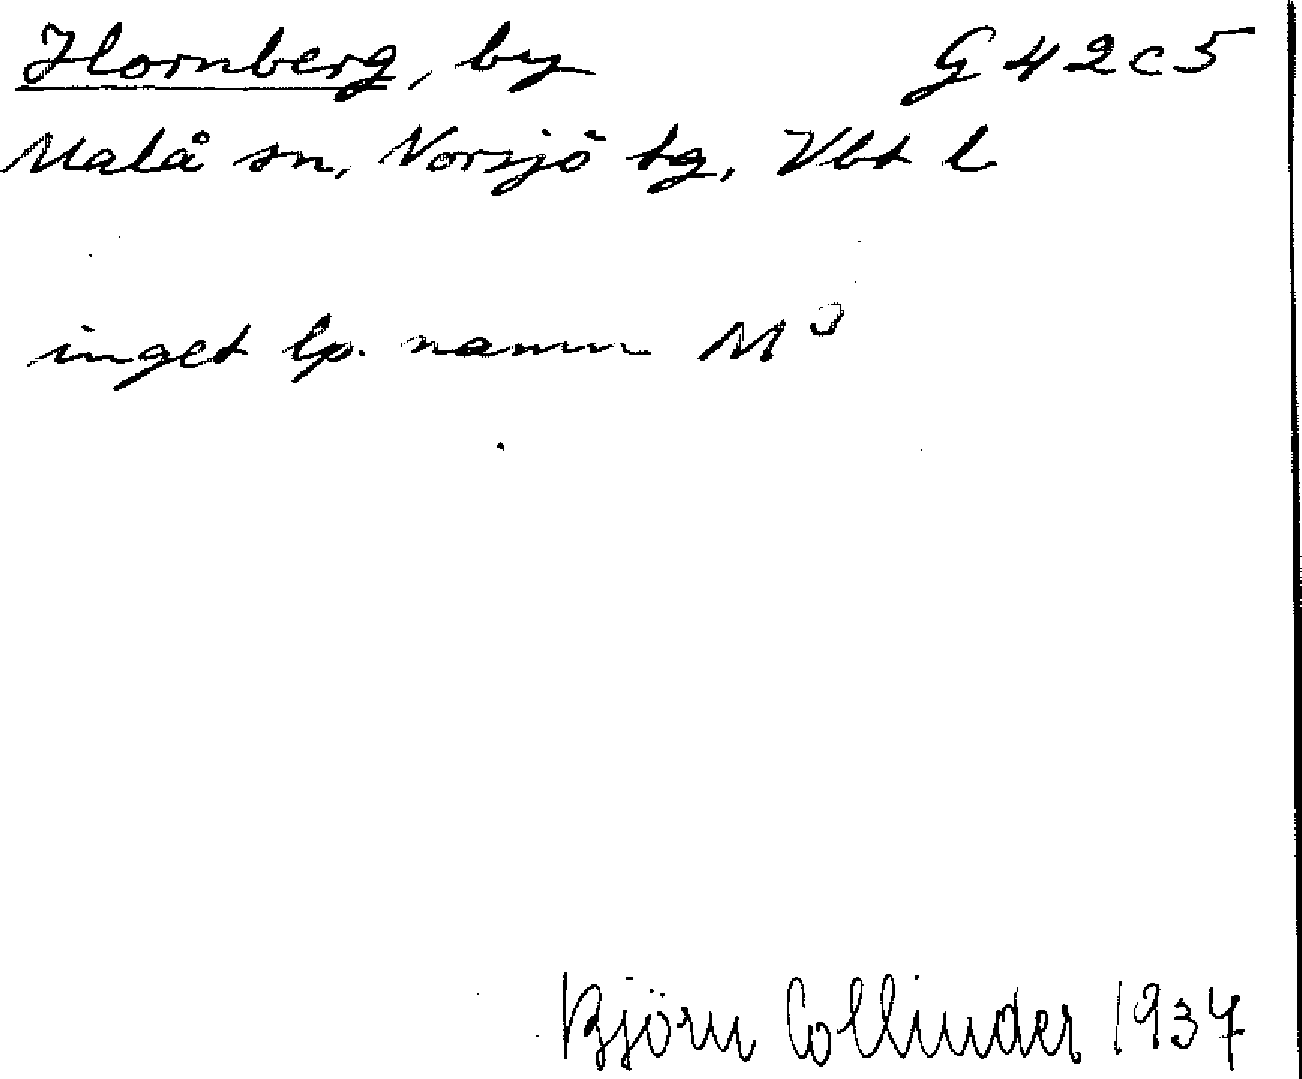 Hornberg, by G42c5
Malå sn, Norsjö tg, Vbt l
inget lp. namn M³
Björn Collinder 1937